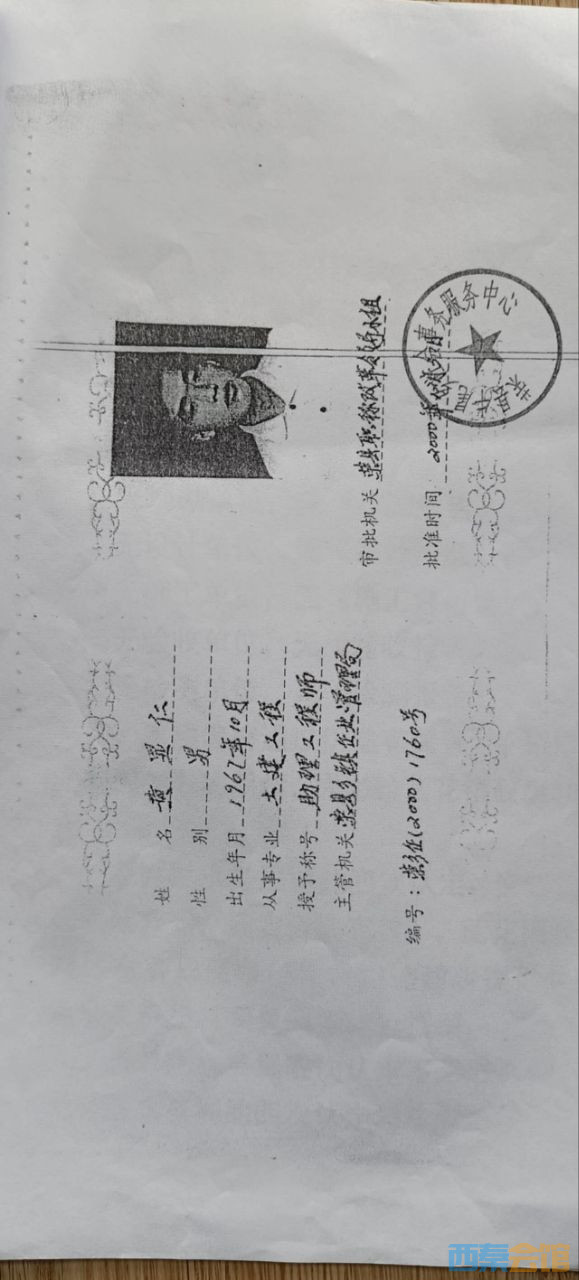 姓 名 黄显仁
性 别 男
出生年月 1967年10月
从事专业 土建工程
授予称号 助理工程师
主管机关 荣县乡镇企业管理局
编号：荣乡企(2000)1760号
审批机关 荣县职称改革领导小组
批准时间 2000年
事务服务中心
西秦会馆